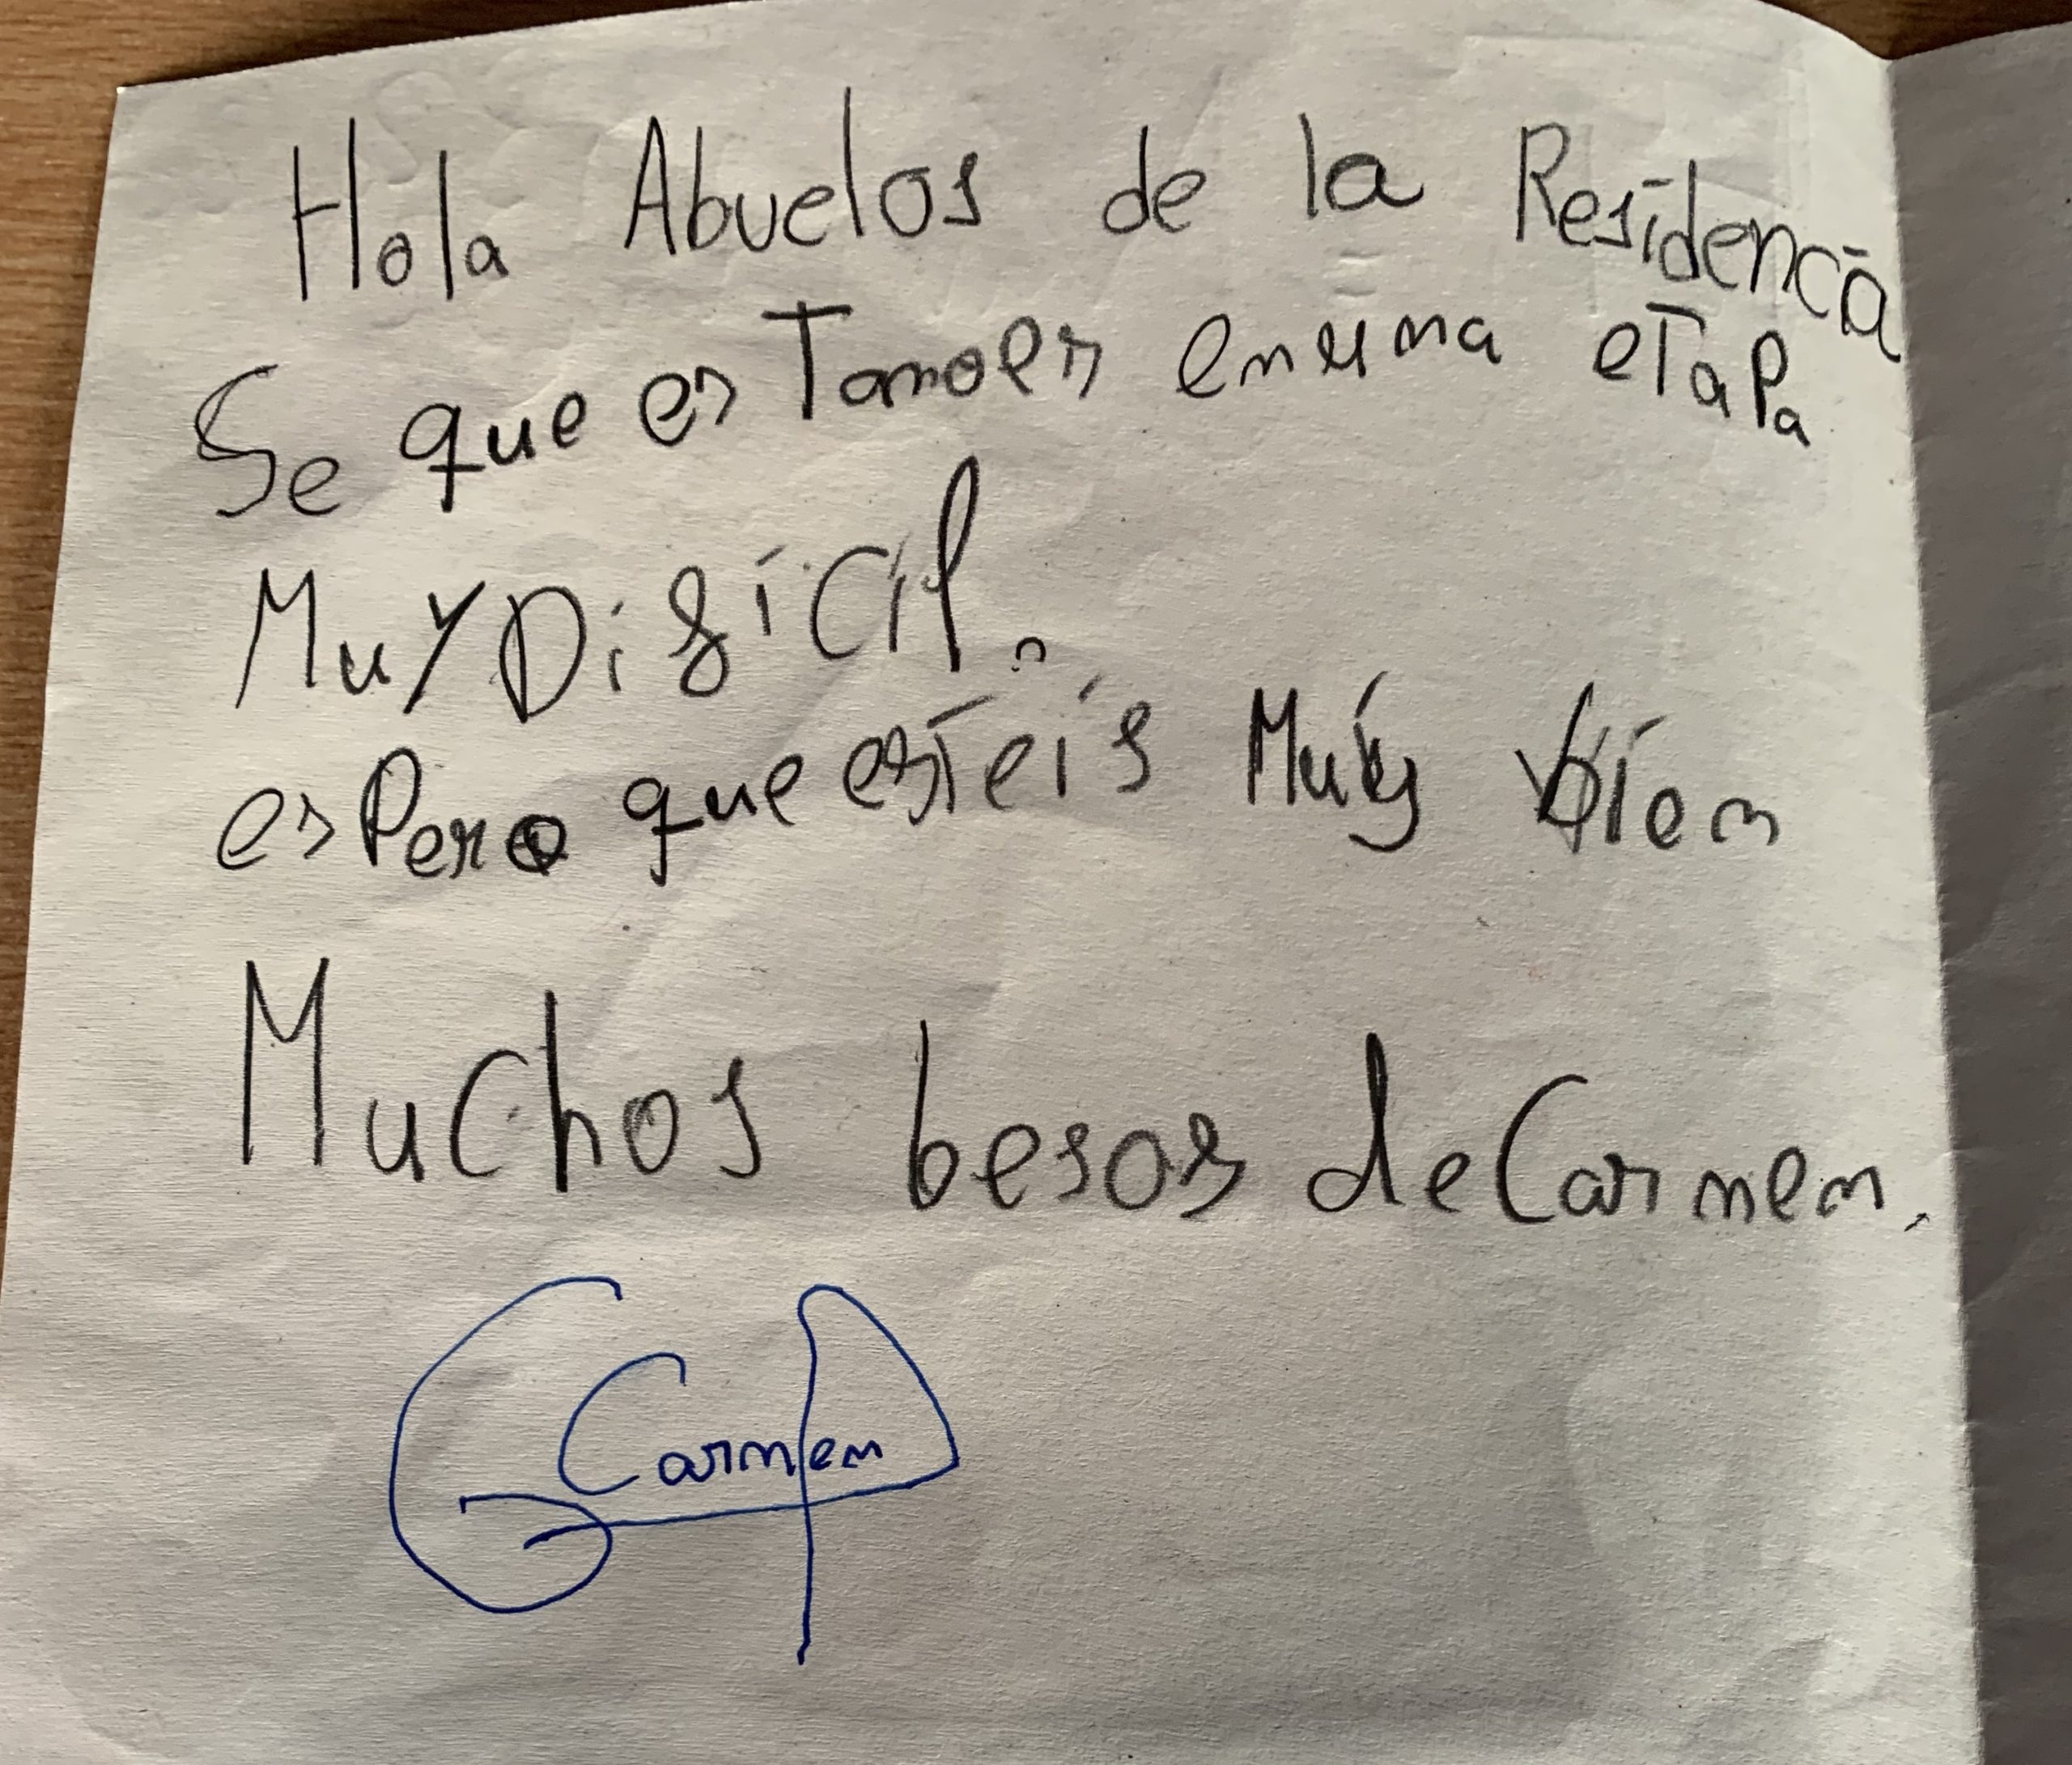 Hola Abuelos de la Residencia
Se que es Tamoes en una eTaPa
MuY DifíCil.
es Pero que esTeis Muy bien
MuChos besos de Carmen.
Carmen